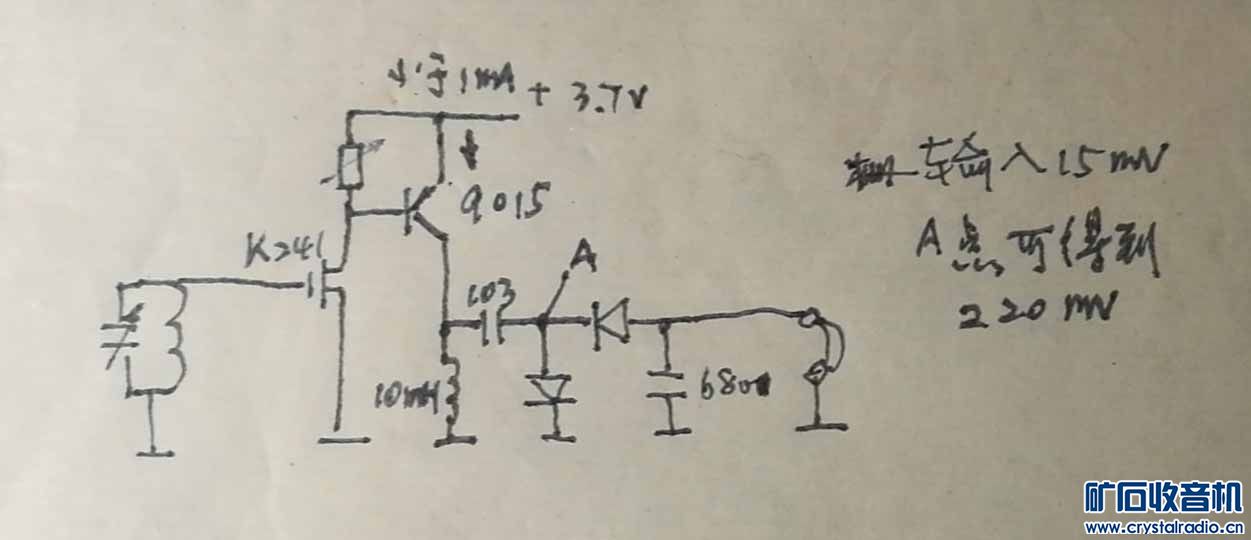 小于1mA + 3.7V
9015
K241
A
103
10mH
680
输入15mV
A点可得到
220mV
矿石收音机
www.crystalradio.cn